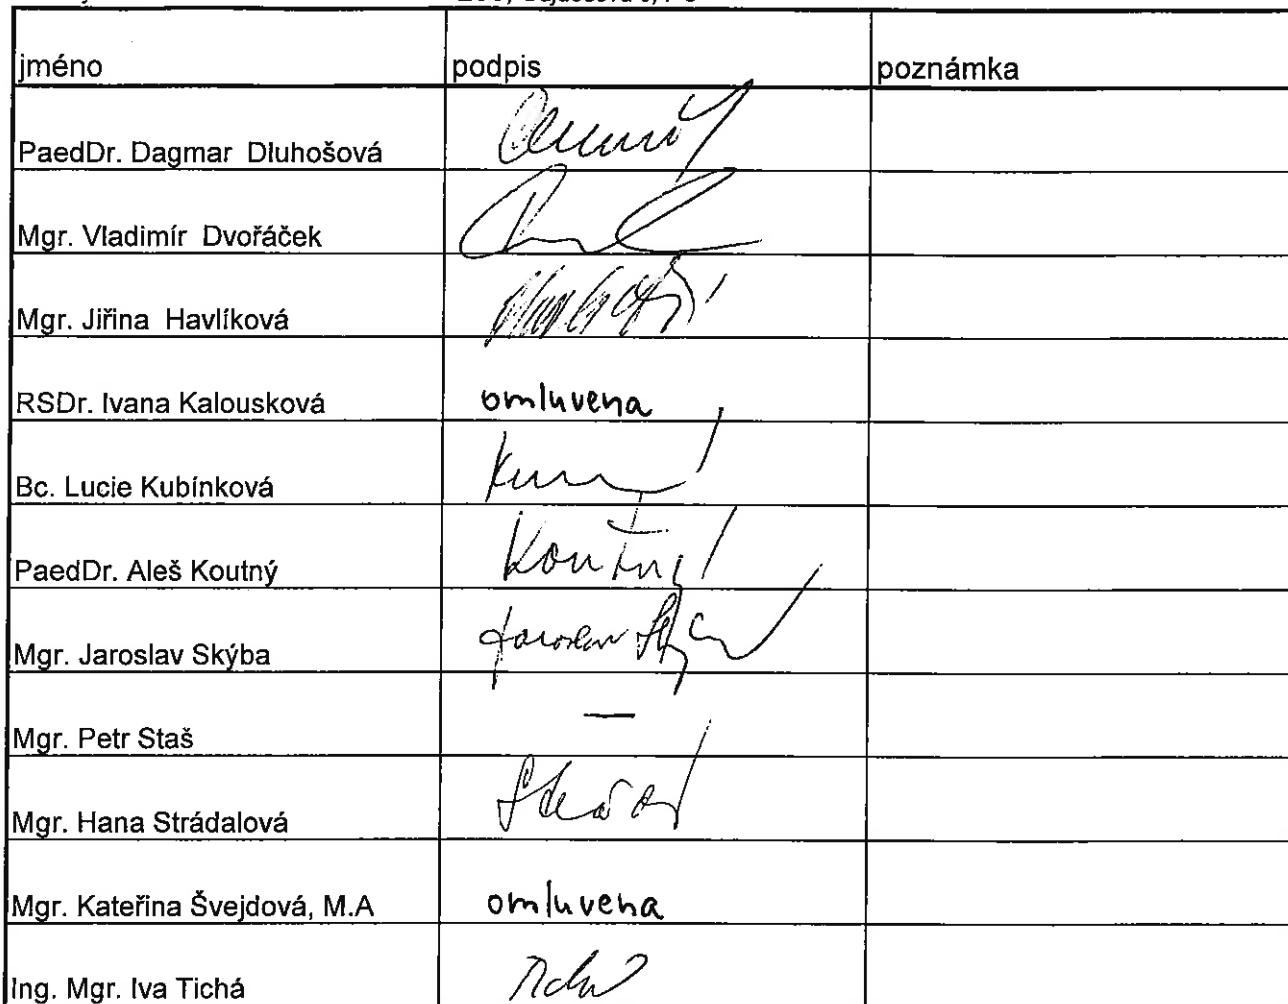 jméno podpis poznámka
PaedDr. Dagmar Dluhošová
Mgr. Vladimír Dvořáček
Mgr. Jiřina Havlíková
RSDr. Ivana Kalousková omluvena
Bc. Lucie Kubínková
PaedDr. Aleš Koutný Koutný
Mgr. Jaroslav Skýba Jaroslav
Mgr. Petr Staš —
Mgr. Hana Strádalová
Mgr. Kateřina Švejdová, M.A omluvena
Ing. Mgr. Iva Tichá